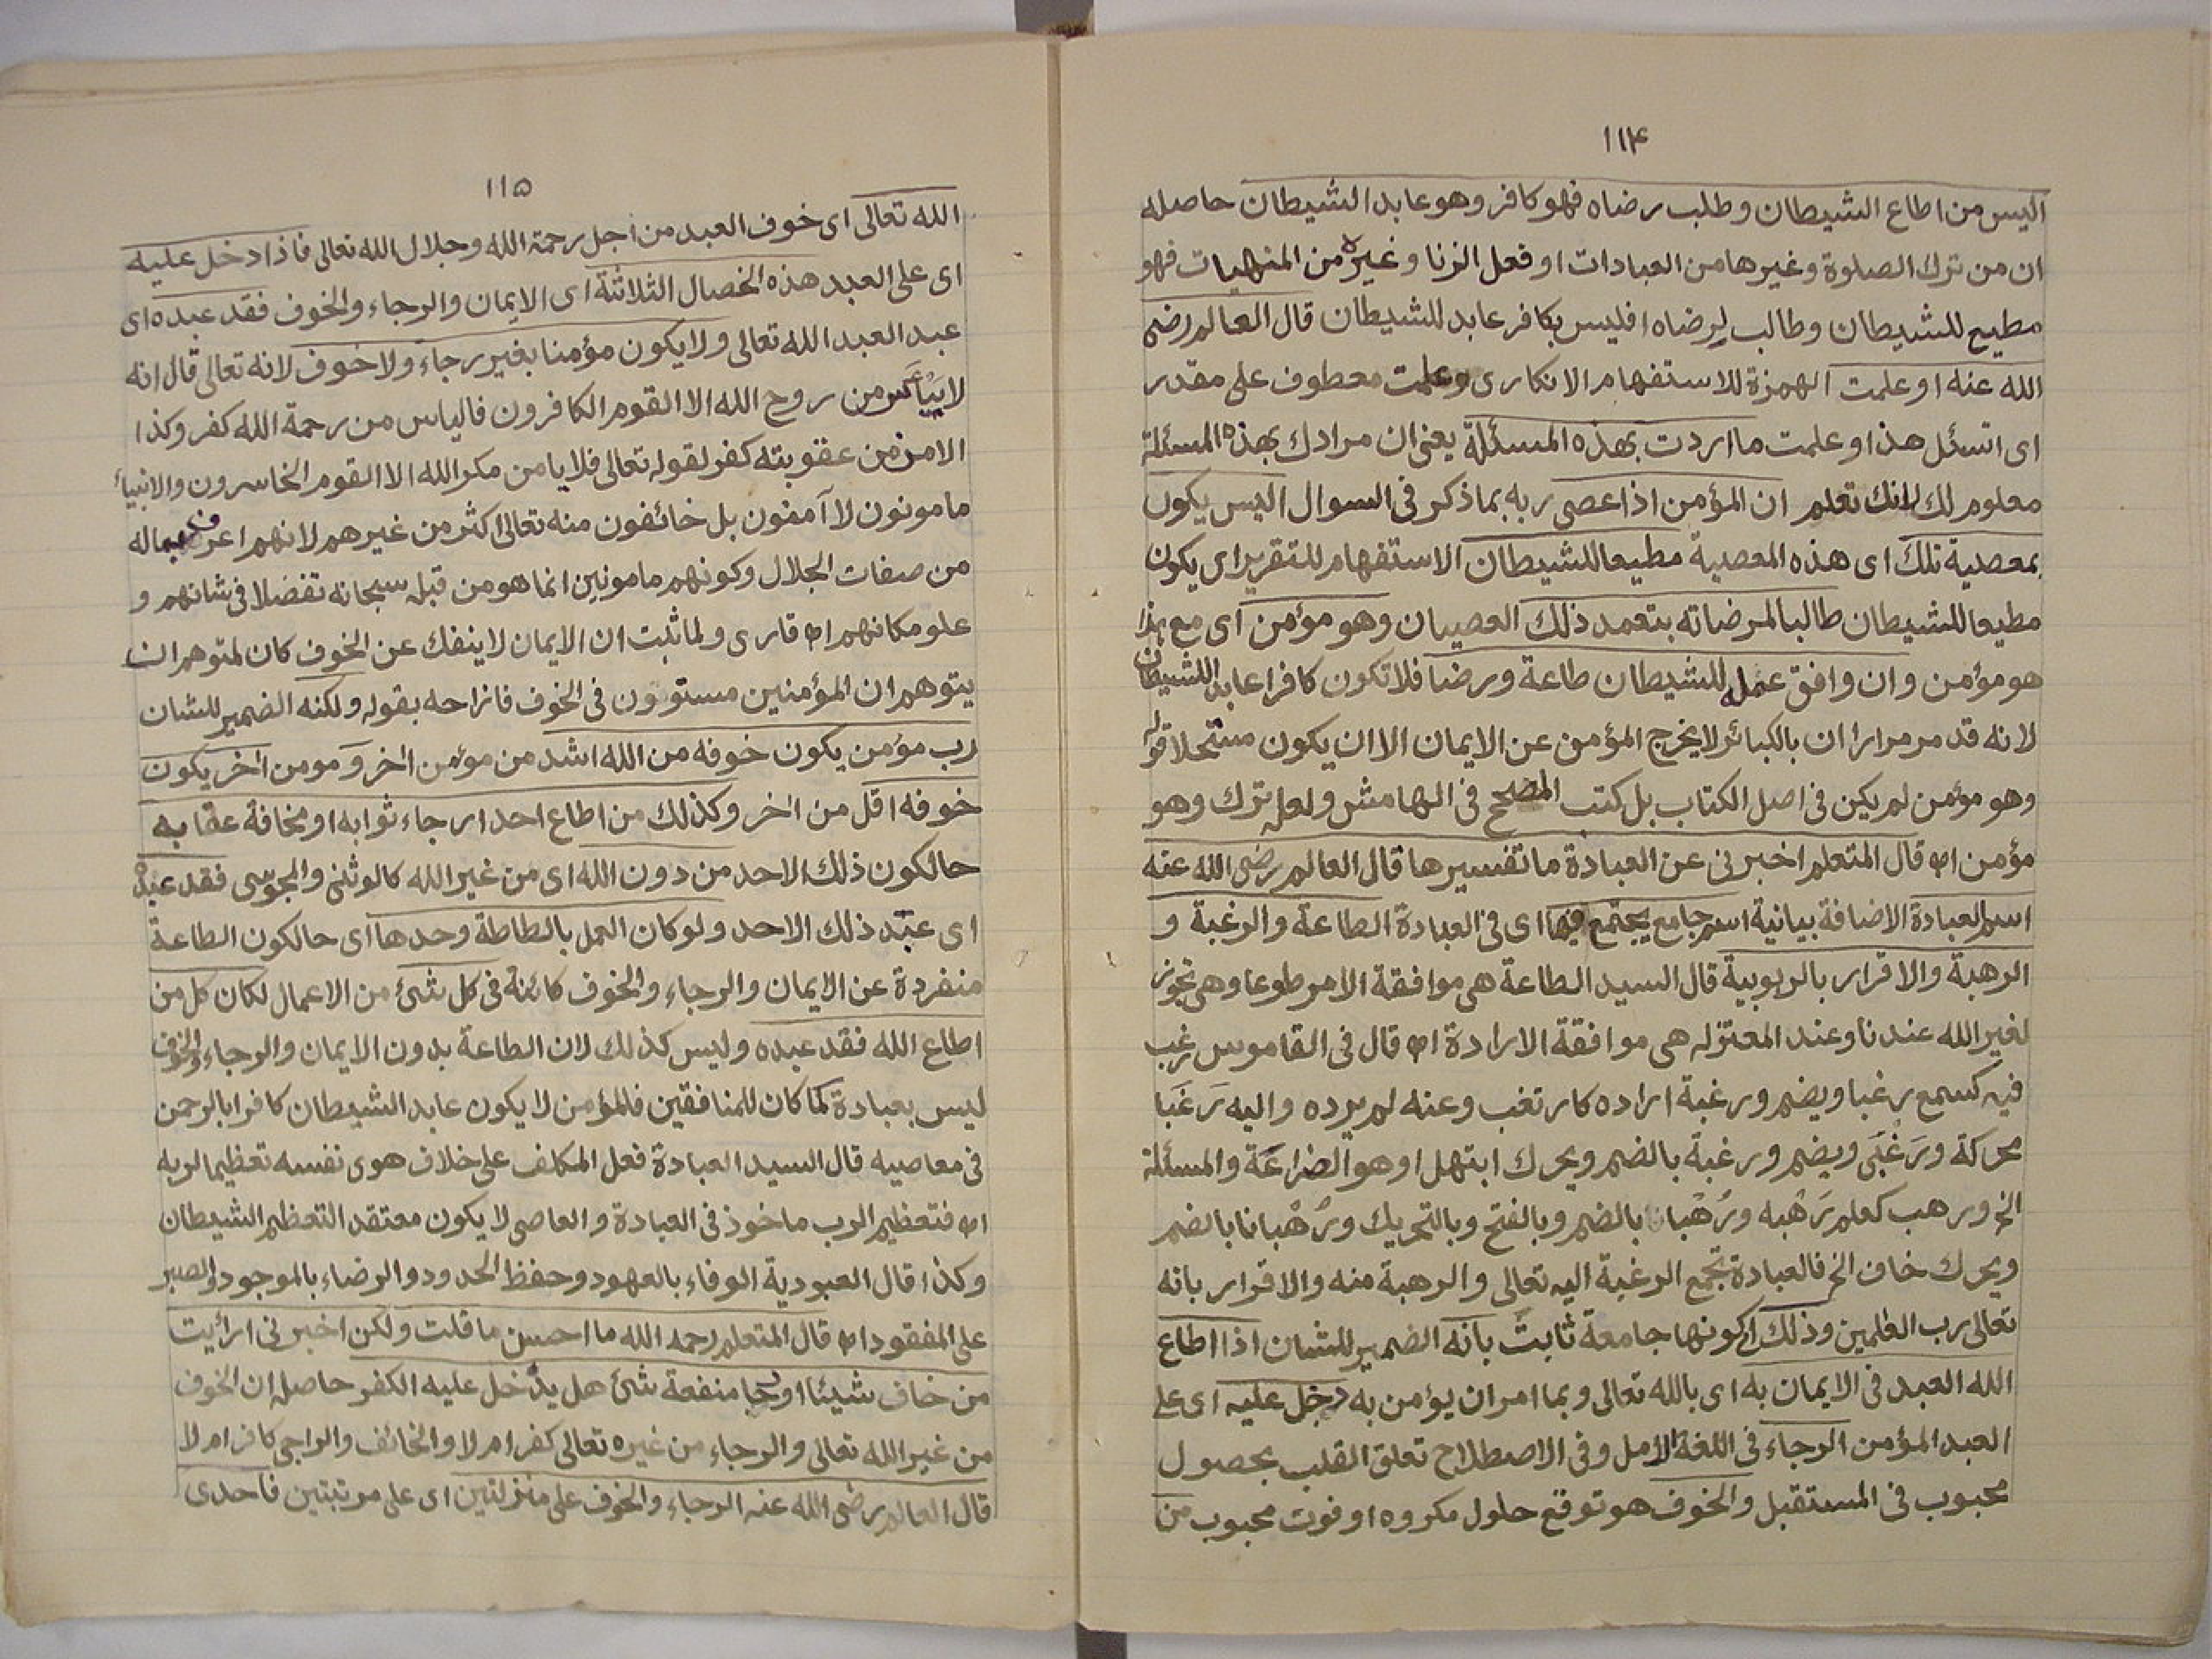 ١١٤
اليس من اطاع الشيطان وطلب رضاه فهو كافر وهو عابد الشيطان حاصله
ان من ترك الصلوة وغيرها من العبادات او فعل الزنا وغيره من المنهيات فهو
مطيع للشيطان وطالب لرضاه افليس بكافر عابد للشيطان قال العالم رضى
الله عنه او علمت الهمزة للاستفهام الانكارى وعلمت معطوف على مقدر
اى اتسئل هذا وعلمت ما اردت بهذه المسئلة يعنى ان مرادك بهذه المسئلة
معلوم لك لانك تعلم ان المؤمن اذا عصى ربه بما ذكر فى السوال اليس يكون
بمعصية تلك اى هذه المعصية مطيعا للشيطان الاستفهام للتقرير اى يكون
مطيعا للشيطان طالبا لمرضاته بتعمد ذلك العصيان وهو مؤمن اى مع هذا
هو مؤمن وان وافق عمله للشيطان طاعة ورضا فلا تكون كافرا عابد للشيطان
لانه قد مر مرارا ان بالكبائر لا يخرج المؤمن عن الايمان الا ان يكون مستحلا قوله
وهو مؤمن لم يكن فى اصل الكتاب بل كتب المصحح فى الهامش ولعله ترك وهو
مؤمن اه قال المتعلم اخبرنى عن العبادة ما تفسيرها قال العالم رضى الله عنه
اسم العبادة الاضافة بيانية اسم جامع يجتمع فيها اى فى العبادة الطاعة والرغبة و
الرهبة والاقرار بالربوبية قال السيد الطاعة هى موافقة الامر طوعا وهى تجوز
لغير الله عندنا وعند المعتزله هى موافقة الارادة اه قال فى القاموس رغب
فيه كسمع رغبا ويضم ورغبة اراده كارتغب وعنه لم يرده واليه رَغَبا
محركة ورَغْبَى ويضم ورغبة بالضم ويحرك ابتهل او هو الضراعة والمسئلة
الخ ورهب كعلم رَهْبه ورُهْبانا بالضم وبالفتح وبالتحريك ورُهْبانا بالضم
ويحرك خاف الخ فالعبادة تجمع الرغبة اليه تعالى والرهبة منه والاقرار بانه
تعالى رب العلمين وذلك اى كونها جامعة ثابت بانه الضمير للشان اذا اطاع
الله العبد فى الايمان به اى بالله تعالى وبما امر ان يؤمن به دخل عليه اى على
العبد المؤمن الرجاء فى اللغة الامل وفى الاصطلاح تعلق القلب بحصول
محبوب فى المستقبل والخوف هو توقع حلول مكروه او فوت محبوب من
١١٥
الله تعالى اى خوف العبد من اجل رحمة الله وجلال الله تعالى فاذا دخل عليه
اى على العبد هذه الخصال الثلاثة اى الايمان والرجاء والخوف فقد عبده اى
عبد العبد الله تعالى ولا يكون مؤمنا بغير رجاء ولا خوف لانه تعالى قال انه
لا يَيْأَس من روح الله الا القوم الكافرون فالياس من رحمة الله كفر وكذا
الامن من عقوبته كفر لقوله تعالى فلا يامن مكر الله الا القوم الخاسرون والانبياء
مامونون لا آمنون بل خائفون منه تعالى اكثر من غيرهم لانهم اعرف بماله
من صفات الجلال وكونهم مامونين انما هو من قبله سبحانه تفضلا فى شانهم و
علو مكانهم اه قارى ولما ثبت ان الايمان لا ينفك عن الخوف كان لمتوهم ان
يتوهم ان المؤمنين مستوون فى الخوف فازاحه بقوله ولكنه الضمير للشان
رب مؤمن يكون خوفه من الله اشد من مؤمن اخر ومومن اخر يكون
خوفه اقل من اخر وكذلك من اطاع احدا رجاء ثوابه او مخافة عقابه
حالكون ذلك الاحد من دون الله اى من غير الله كالوثنى والمجوسى فقد عبده
اى عبد ذلك الاحد ولو كان العمل بالطاطة وحدها اى حالكون الطاعة
منفردة عن الايمان والرجاء والخوف كائنة فى كل شئ من الاعمال لكان كل من
اطاع الله فقد عبده وليس كذلك لان الطاعة بدون الايمان والرجاء والخوف
ليس بعبادة كما كان للمنافقين فالمؤمن لا يكون عابد الشيطان كافرا بالرحمن
فى معاصيه قال السيد العبادة فعل المكلف على خلاف هوى نفسه تعظيما لربه
اه فتعظيم الرب ماخوذ فى العبادة والعاصى لا يكون معتقد التعظيم الشيطان
وكذا قال العبودية الوفاء بالعهود وحفظ الحدود والرضاء بالموجود والصبر
على المفقود اه قال المتعلم رحمه الله ما احسن ما قلت ولكن اخبرنى ارأيت
من خاف شيئا او رجا منفعة شئ هل يدخل عليه الكفر حاصله ان الخوف
من غير الله تعالى والرجاء من غيره تعالى كفر ام لا والخائف والراجى كافر ام لا
قال العالم رضى الله عنه الرجاء والخوف على منزلتين اى على مرتبتين فاحدى